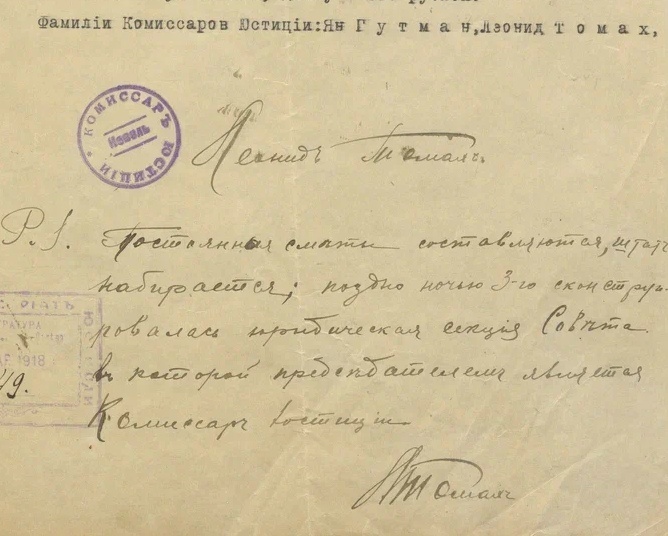 Фамиліи Комиссаров Юстиціи:Ян Г у т м а н,Леонид Т о м а х,
КОМИССАРЪ ЮСТИЦІИ
Невель
Леонидъ Томахъ
P.S. Постоянныя сметы составляются, штатъ
набирается; поздно ночью 3-го сконструи-
ровалась юридическая секція Совѣта
въ которой предсѣдателемъ является
Комиссаръ Юстиціи.
1918
49.
ЛТомахъ